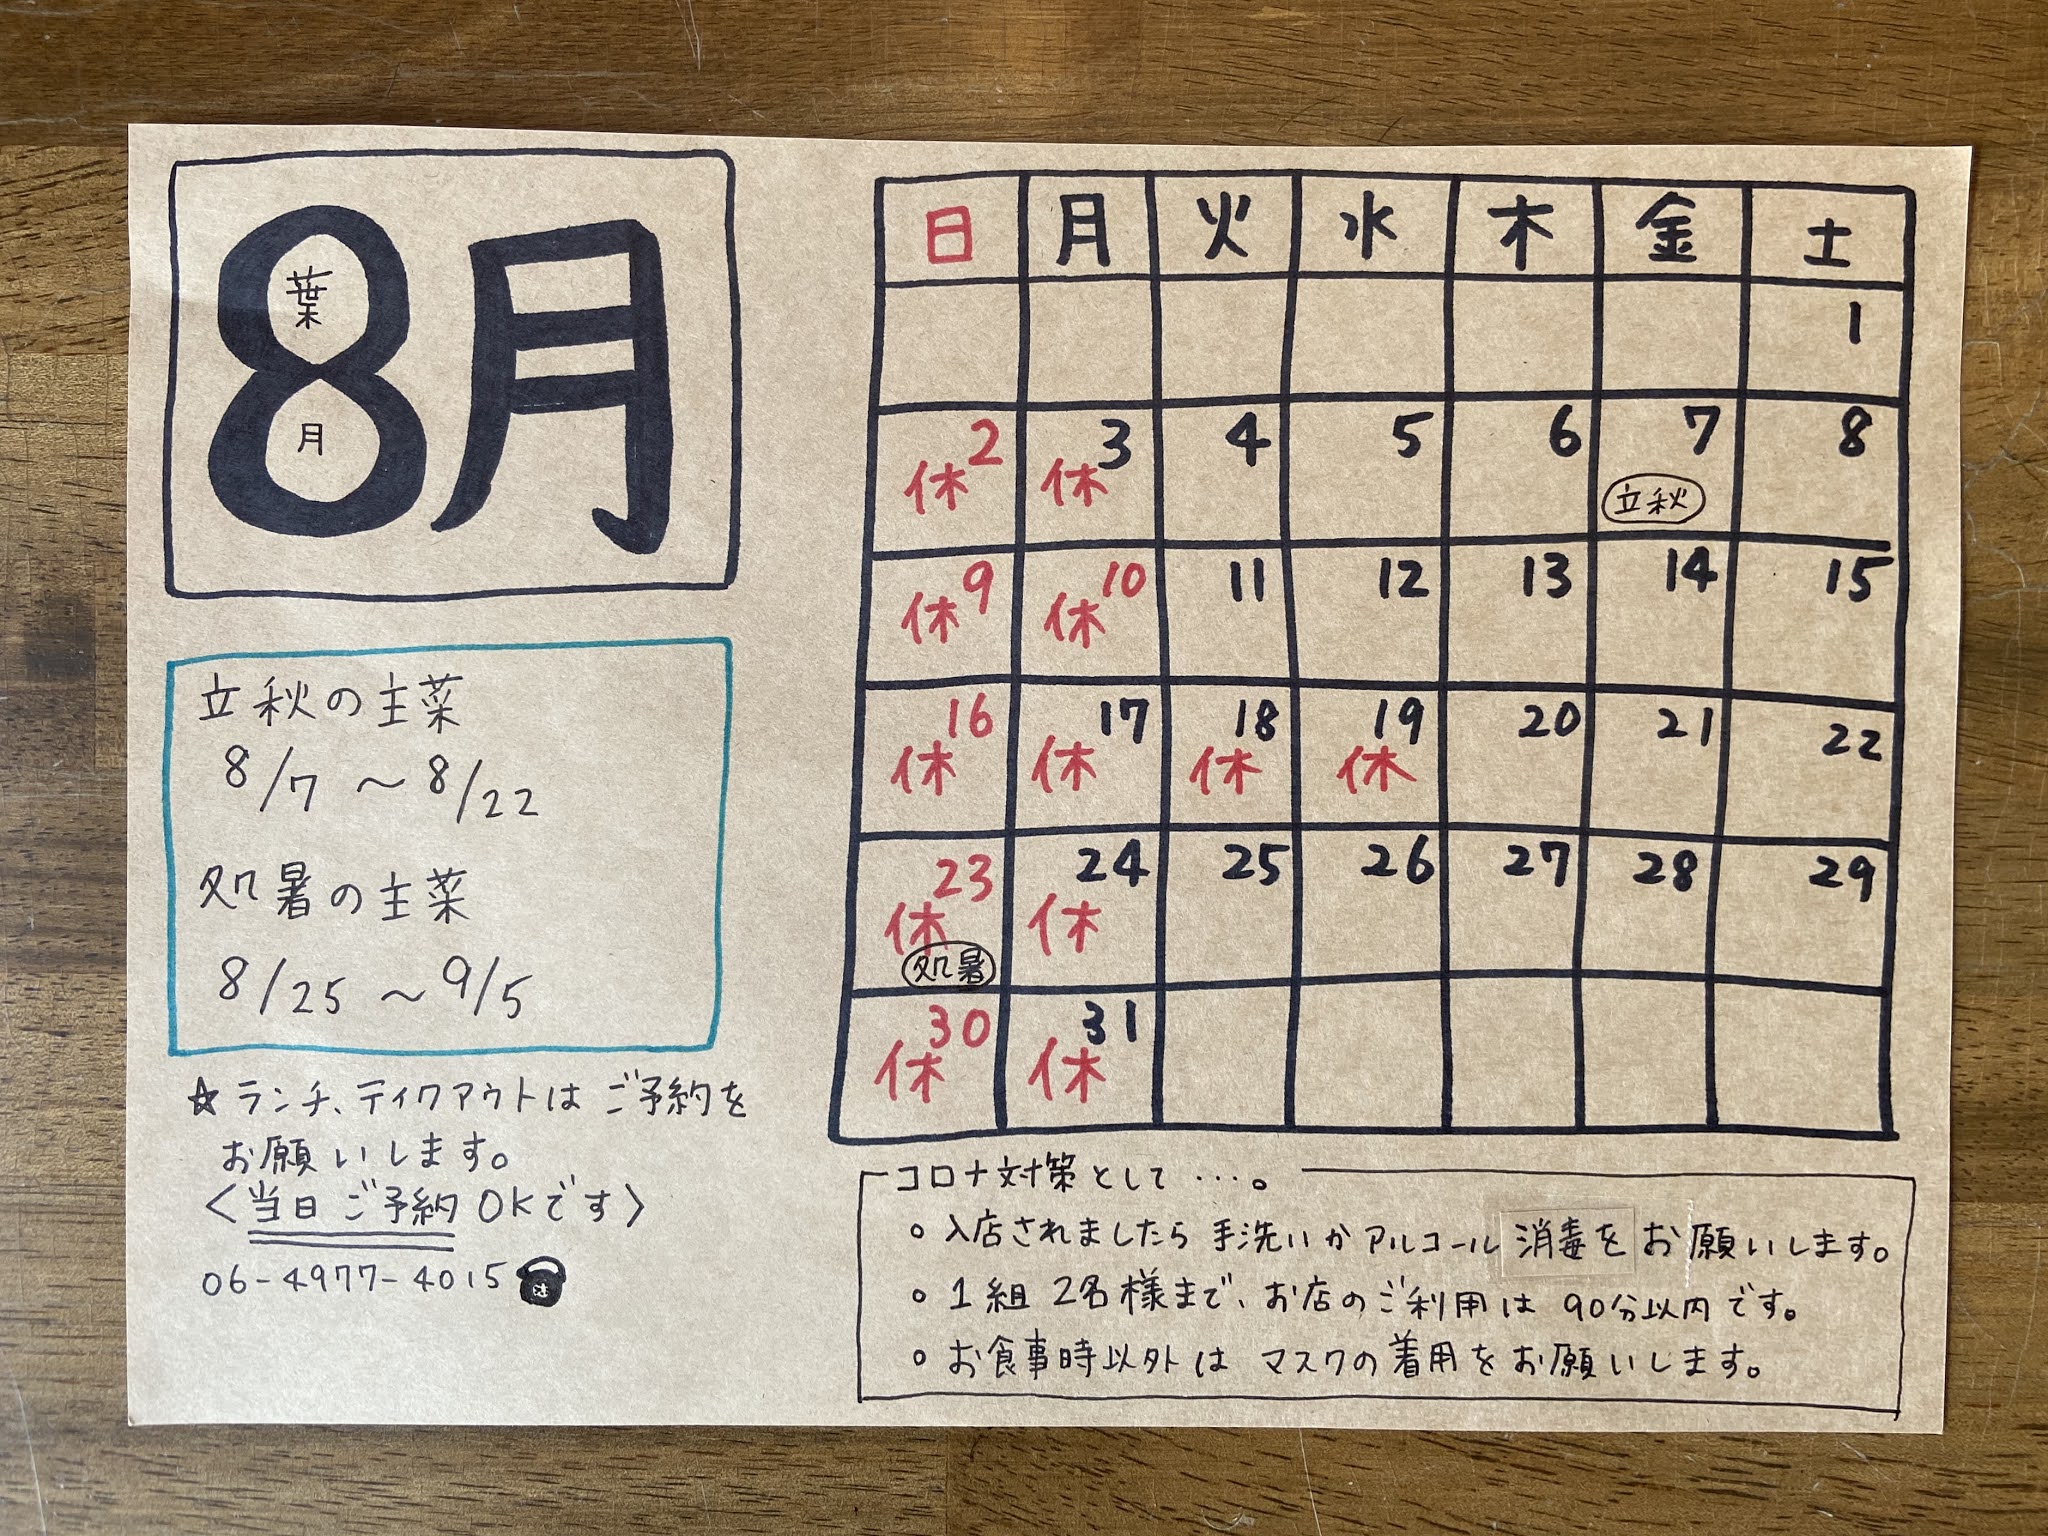 8月
葉
月
立秋の主菜
8/7 〜 8/22
処暑の主菜
8/25 〜 9/5
☆ランチ、テイクアウトはご予約を
お願いします。
〈当日ご予約OKです〉
06-4977-4015
日 月 火 水 木 金 土
1
2 3 4 5 6 7 8
休 休 立秋
9 10 11 12 13 14 15
休 休
16 17 18 19 20 21 22
休 休 休 休
23 24 25 26 27 28 29
休 休
処暑
30 31
休 休
コロナ対策として・・・。
○ 入店されましたら手洗いかアルコール消毒をお願いします。
○ 1組 2名様まで、お店のご利用は 90分以内です。
○ お食事時以外は マスクの着用をお願いします。